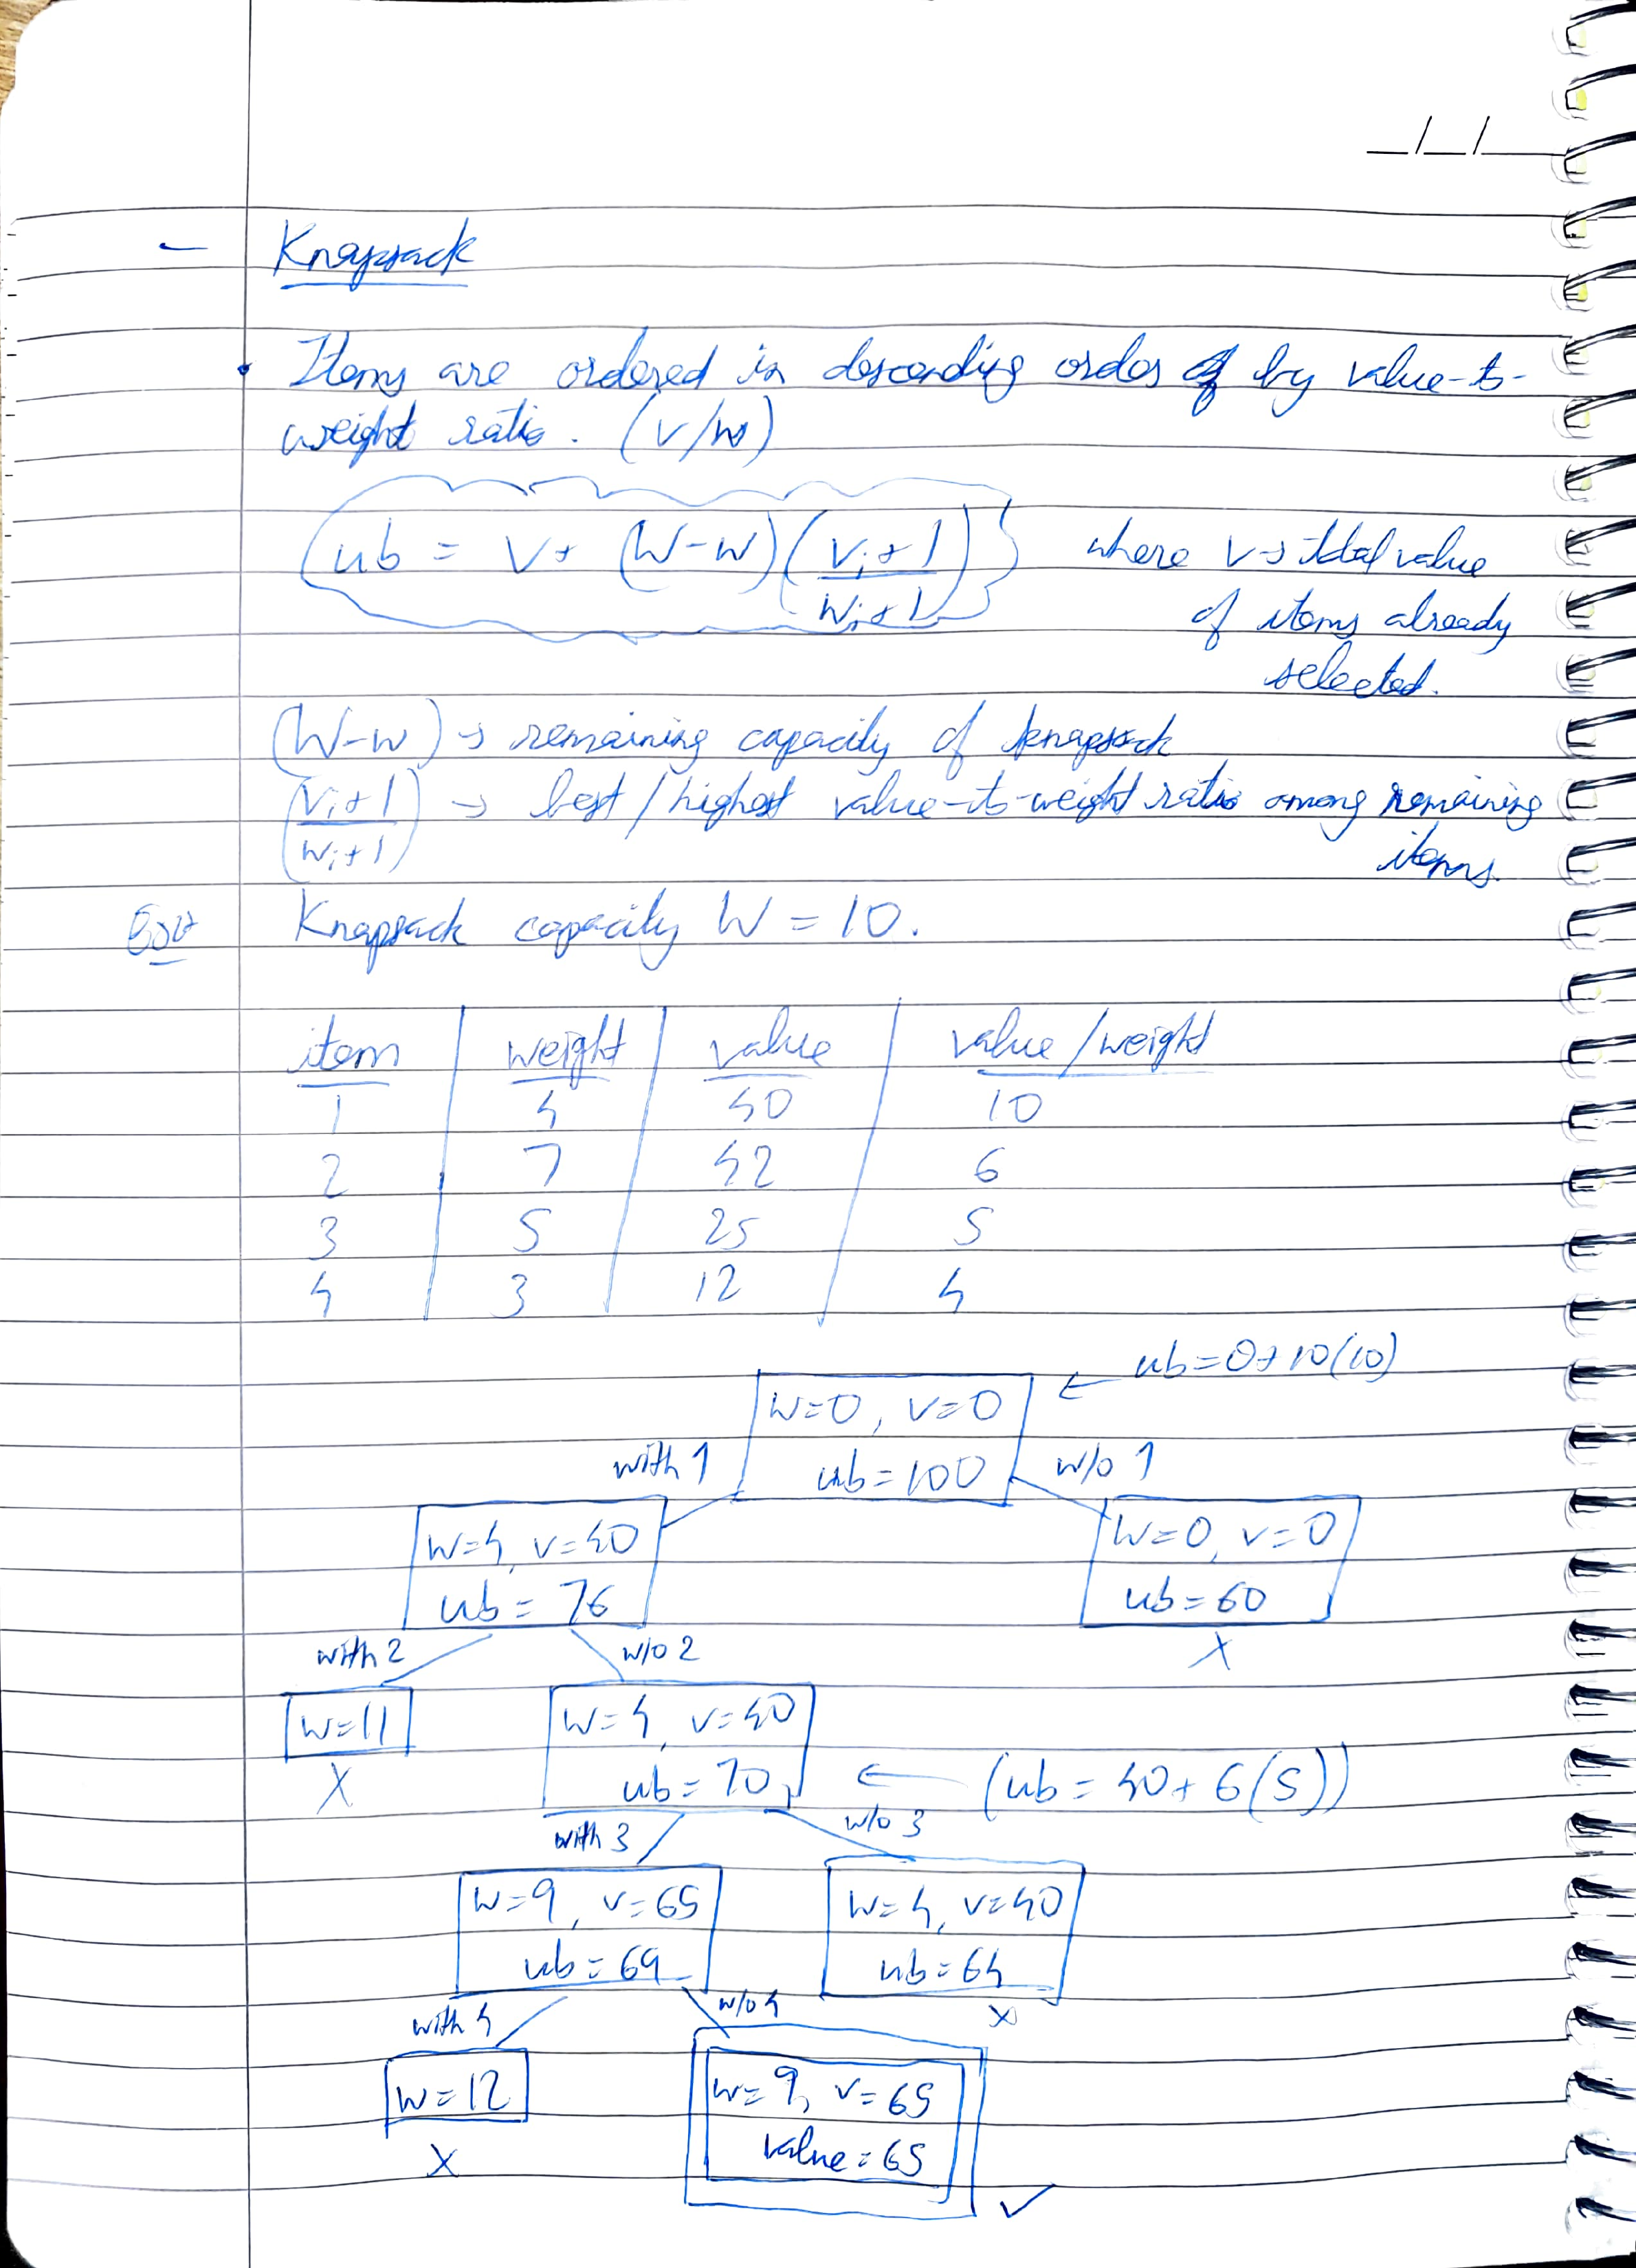 _/_/_
- Knapsack
• Items are ordered in descending order by value-to-
weight ratio. (v/w)
ub = v + (W-w) (vi+1 / wi+1) where v → total value
of items already
selected.
(W-w) → remaining capacity of knapsack
(vi+1 / wi+1) → best/highest value-to-weight ratio among remaining
items.
Knapsack capacity W = 10.
item weight value value/weight
1 4 40 10
2 7 42 6
3 5 25 5
4 3 12 4
ub=0+10(10)
w=0, v=0
ub=100
with 1 w/o 1
w=4, v=40 w=0, v=0
ub = 76 ub=60
with 2 w/o 2 X
w=11 w=4, v=40
X ub=70 ← (ub = 40+6(5))
with 3 w/o 3
w=9, v=65 w=4, v=40
ub=69 ub=64
with 4 w/o 4 X
w=12 w=9, v=65
X value=65
✓